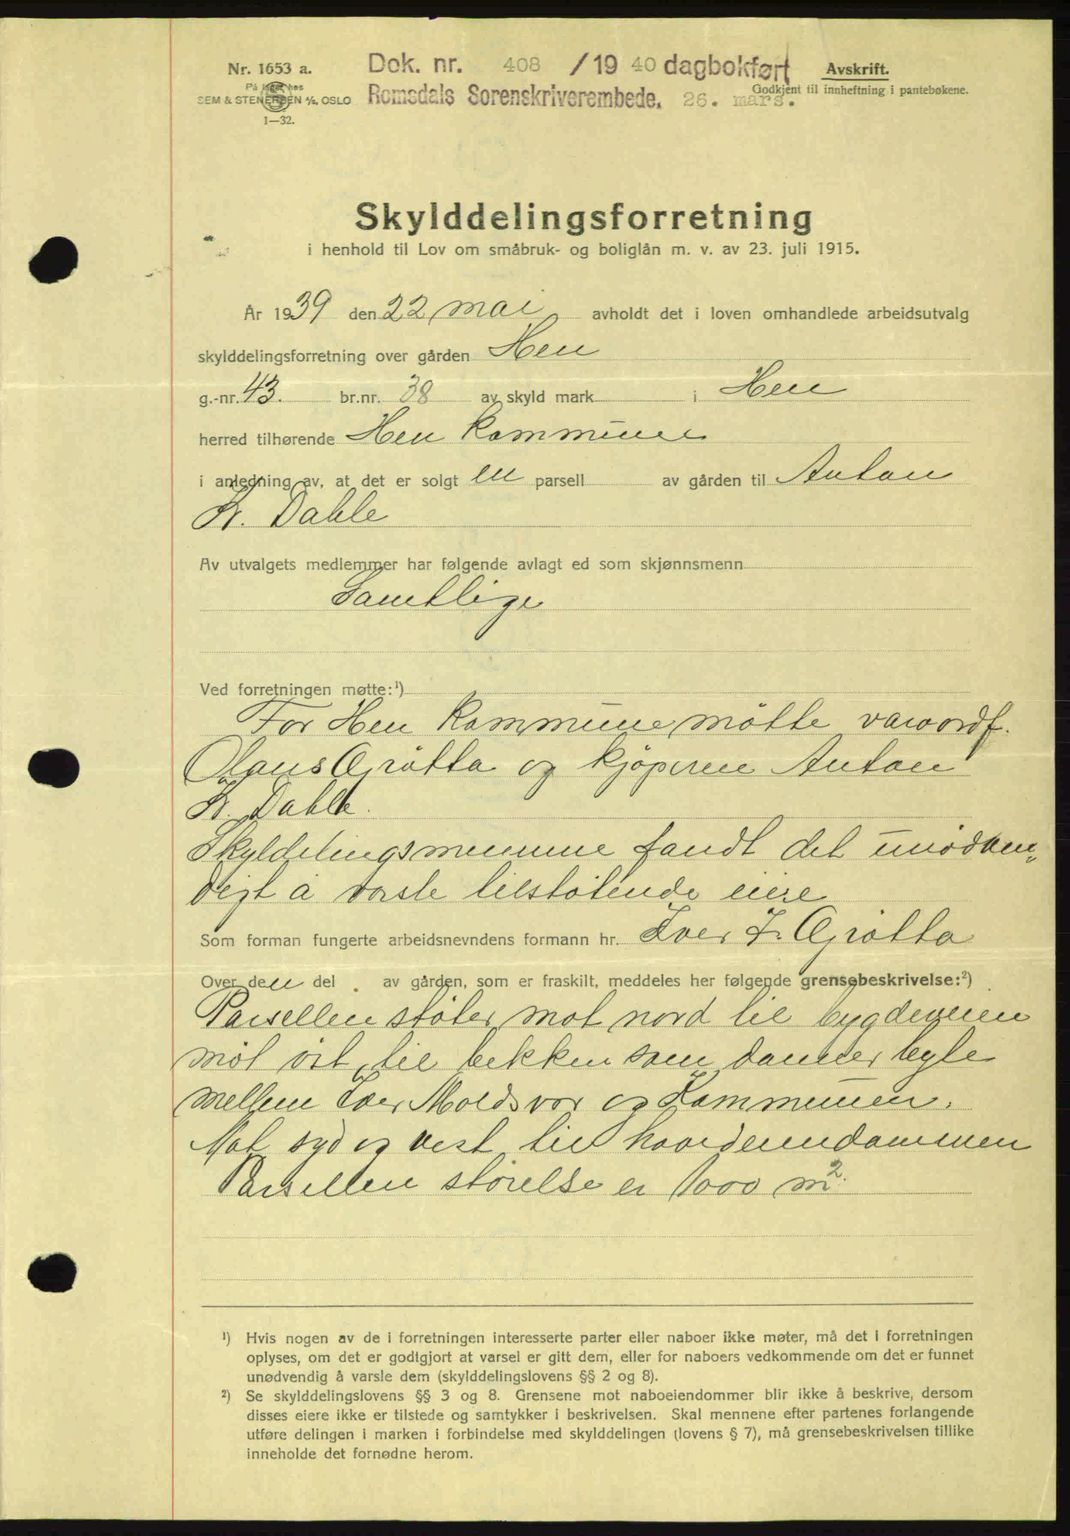 Nr. 1653 a.
På lager hos
SEM & STENERSEN A/S, OSLO
1—32.
Dok. nr. 408 / 19 40 dagbokført
Romsdals Sorenskriverembede, 26. mars.
Avskrift.
Godkjent til innheftning i pantebøkene.
Skylddelingsforretning
i henhold til Lov om småbruk- og boliglån m. v. av 23. juli 1915.
År 1939 den 22 mai avholdt det i loven omhandlede arbeidsutvalg
skylddelingsforretning over gården Hen
g.-nr. 43. br.nr. 38 av skyld mark i Hen
herred tilhørende Hen kommune
i anledning av, at det er solgt en parsell av gården til Anton
Kr. Dahle
Av utvalgets medlemmer har følgende avlagt ed som skjønnsmenn
Samtlige
Ved forretningen møtte:¹)
For Hen kommune møtte varaordf.
Olaus Grøtta og kjøperen Anton
Kr. Dahle.
Skyldelingsmennene fandt det unødven-
digt å varsle tilstøtende eiere
Som forman fungerte arbeidsnevndens formann hr. Iver I. Grøtta
Over den del av gården, som er fraskilt, meddeles her følgende grensebeskrivelse:²)
Parsellen støter mot nord til bygdeveien
mot øst til bekken som danner byte
mellem Iver Moldsvor og Kommunen.
Mot syd og vest til
Parsellen størelse er 1000 m².
¹) Hvis nogen av de i forretningen interesserte parter eller naboer ikke møter, må det i forretningen
oplyses, om det er godtgjort at varsel er gitt dem, eller for naboers vedkommende om det er funnet
unødvendig å varsle dem (skylddelingslovens §§ 2 og 8).
²) Se skylddelingslovens §§ 3 og 8. Grensene mot naboeiendommer blir ikke å beskrive, dersom
disses eiere ikke er tilstede og samtykker i beskrivelsen. Skal mennene efter partenes forlangende
utføre delingen i marken i forbindelse med skylddelingen (lovens § 7), må grensebeskrivelsen tillike
inneholde det fornødne herom.